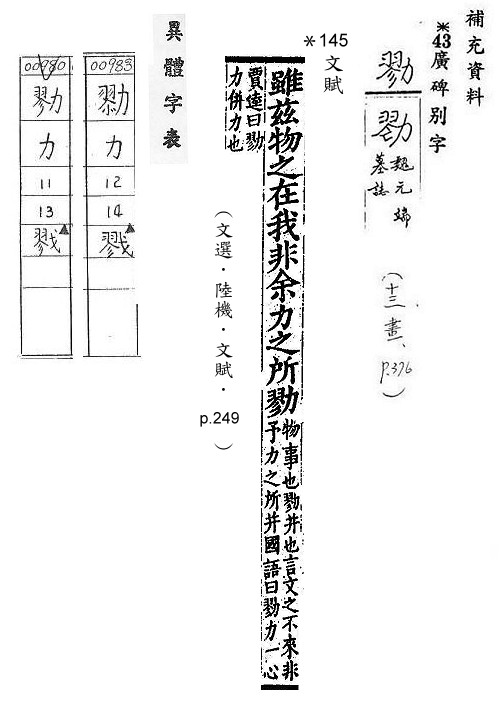 補充資料
*43廣碑別字
勠
魏元端
墓誌
(十三畫、
p.376)
*145
文賦
雖茲物之在我非余力之所勠
物事也勠并也言文之不來非
予力之所并國語曰勠力一心
賈逵曰勠
力併力也
(文選.陸機.文賦.
p.249)
異體字表
00983
力
12
14
00980
勠
力
11
13
戮